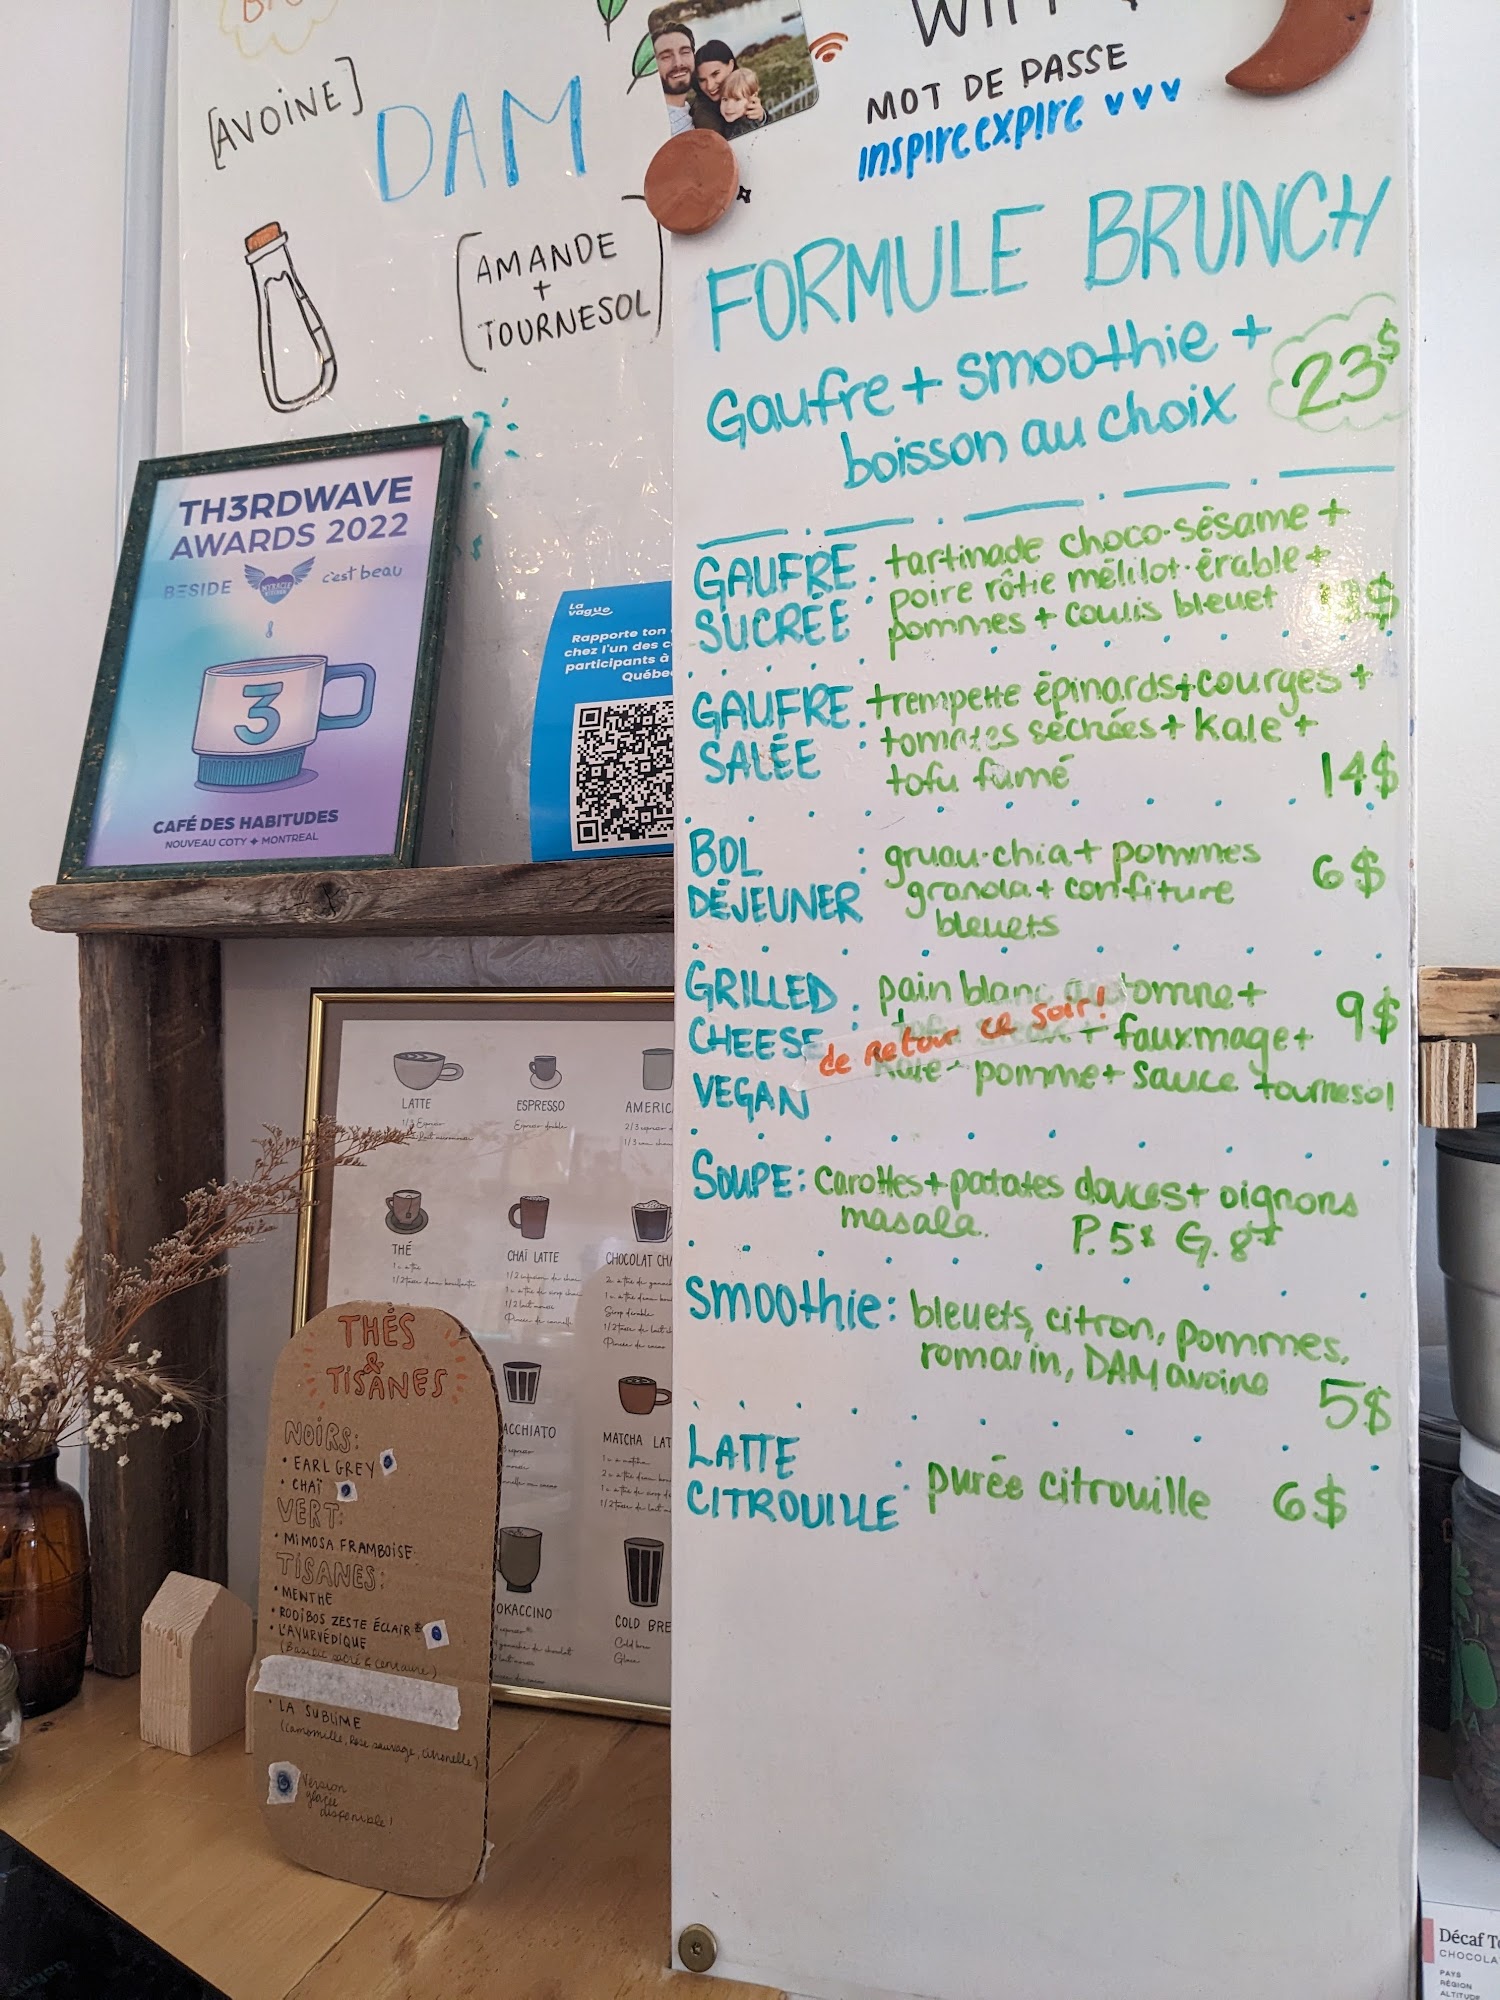 [AVOINE]
DAM
(AMANDE
+
TOURNESOL)
MOT DE PASSE
inspireexpire
FORMULE BRUNCH
Gaufre + smoothie +
boisson au choix
23$
GAUFRE : tartinade choco-sésame +
SUCRÉE poire rôtie mélilot-érable +
pommes + coulis bleuet
GAUFRE : trempette épinards + courges +
SALÉE tomates séchées + kale +
tofu fumé 14$
BOL : gruau-chia + pommes 6$
DÉJEUNER granola + confiture
bleuets
GRILLED : pain blanc automne + 9$
CHEESE + fauxmage +
VEGAN kale - pomme + sauce tournesol
de retour ce soir!
SOUPE: carottes + patates douces + oignons
masala. P. 5$ G. 8$
Smoothie: bleuets, citron, pommes,
romarin, DAM avoine
5$
LATTE : purée citrouille 6$
CITROUILLE
TH3RDWAVE
AWARDS 2022
BESIDE
MYRACLE
c'est beau
3
CAFÉ DES HABITUDES
NOUVEAU COTY MONTREAL
La
vague
Rapporte ton
chez l'un des
participants à
Québec
LATTE
ESPRESSO
Espresso double
THÉ
CHAÏ LATTE
CHOCOLAT
MATCHA
COLD
Cold brew
Glace
THÉS
&
TISANES
NOIRS:
• EARL GREY
• CHAÏ
VERT:
• MIMOSA FRAMBOISE
TISANES:
• MENTHE
• ROOIBOS ZESTE ÉCLAIR
• L'AYURVÉDIQUE
(Basilic sacré & centaurée)
• LA SUBLIME
(Camomille, Rose sauvage, citronnelle)
Version
glacée
disponible!
Décaf
PAYS
RÉGION
ALTITUDE